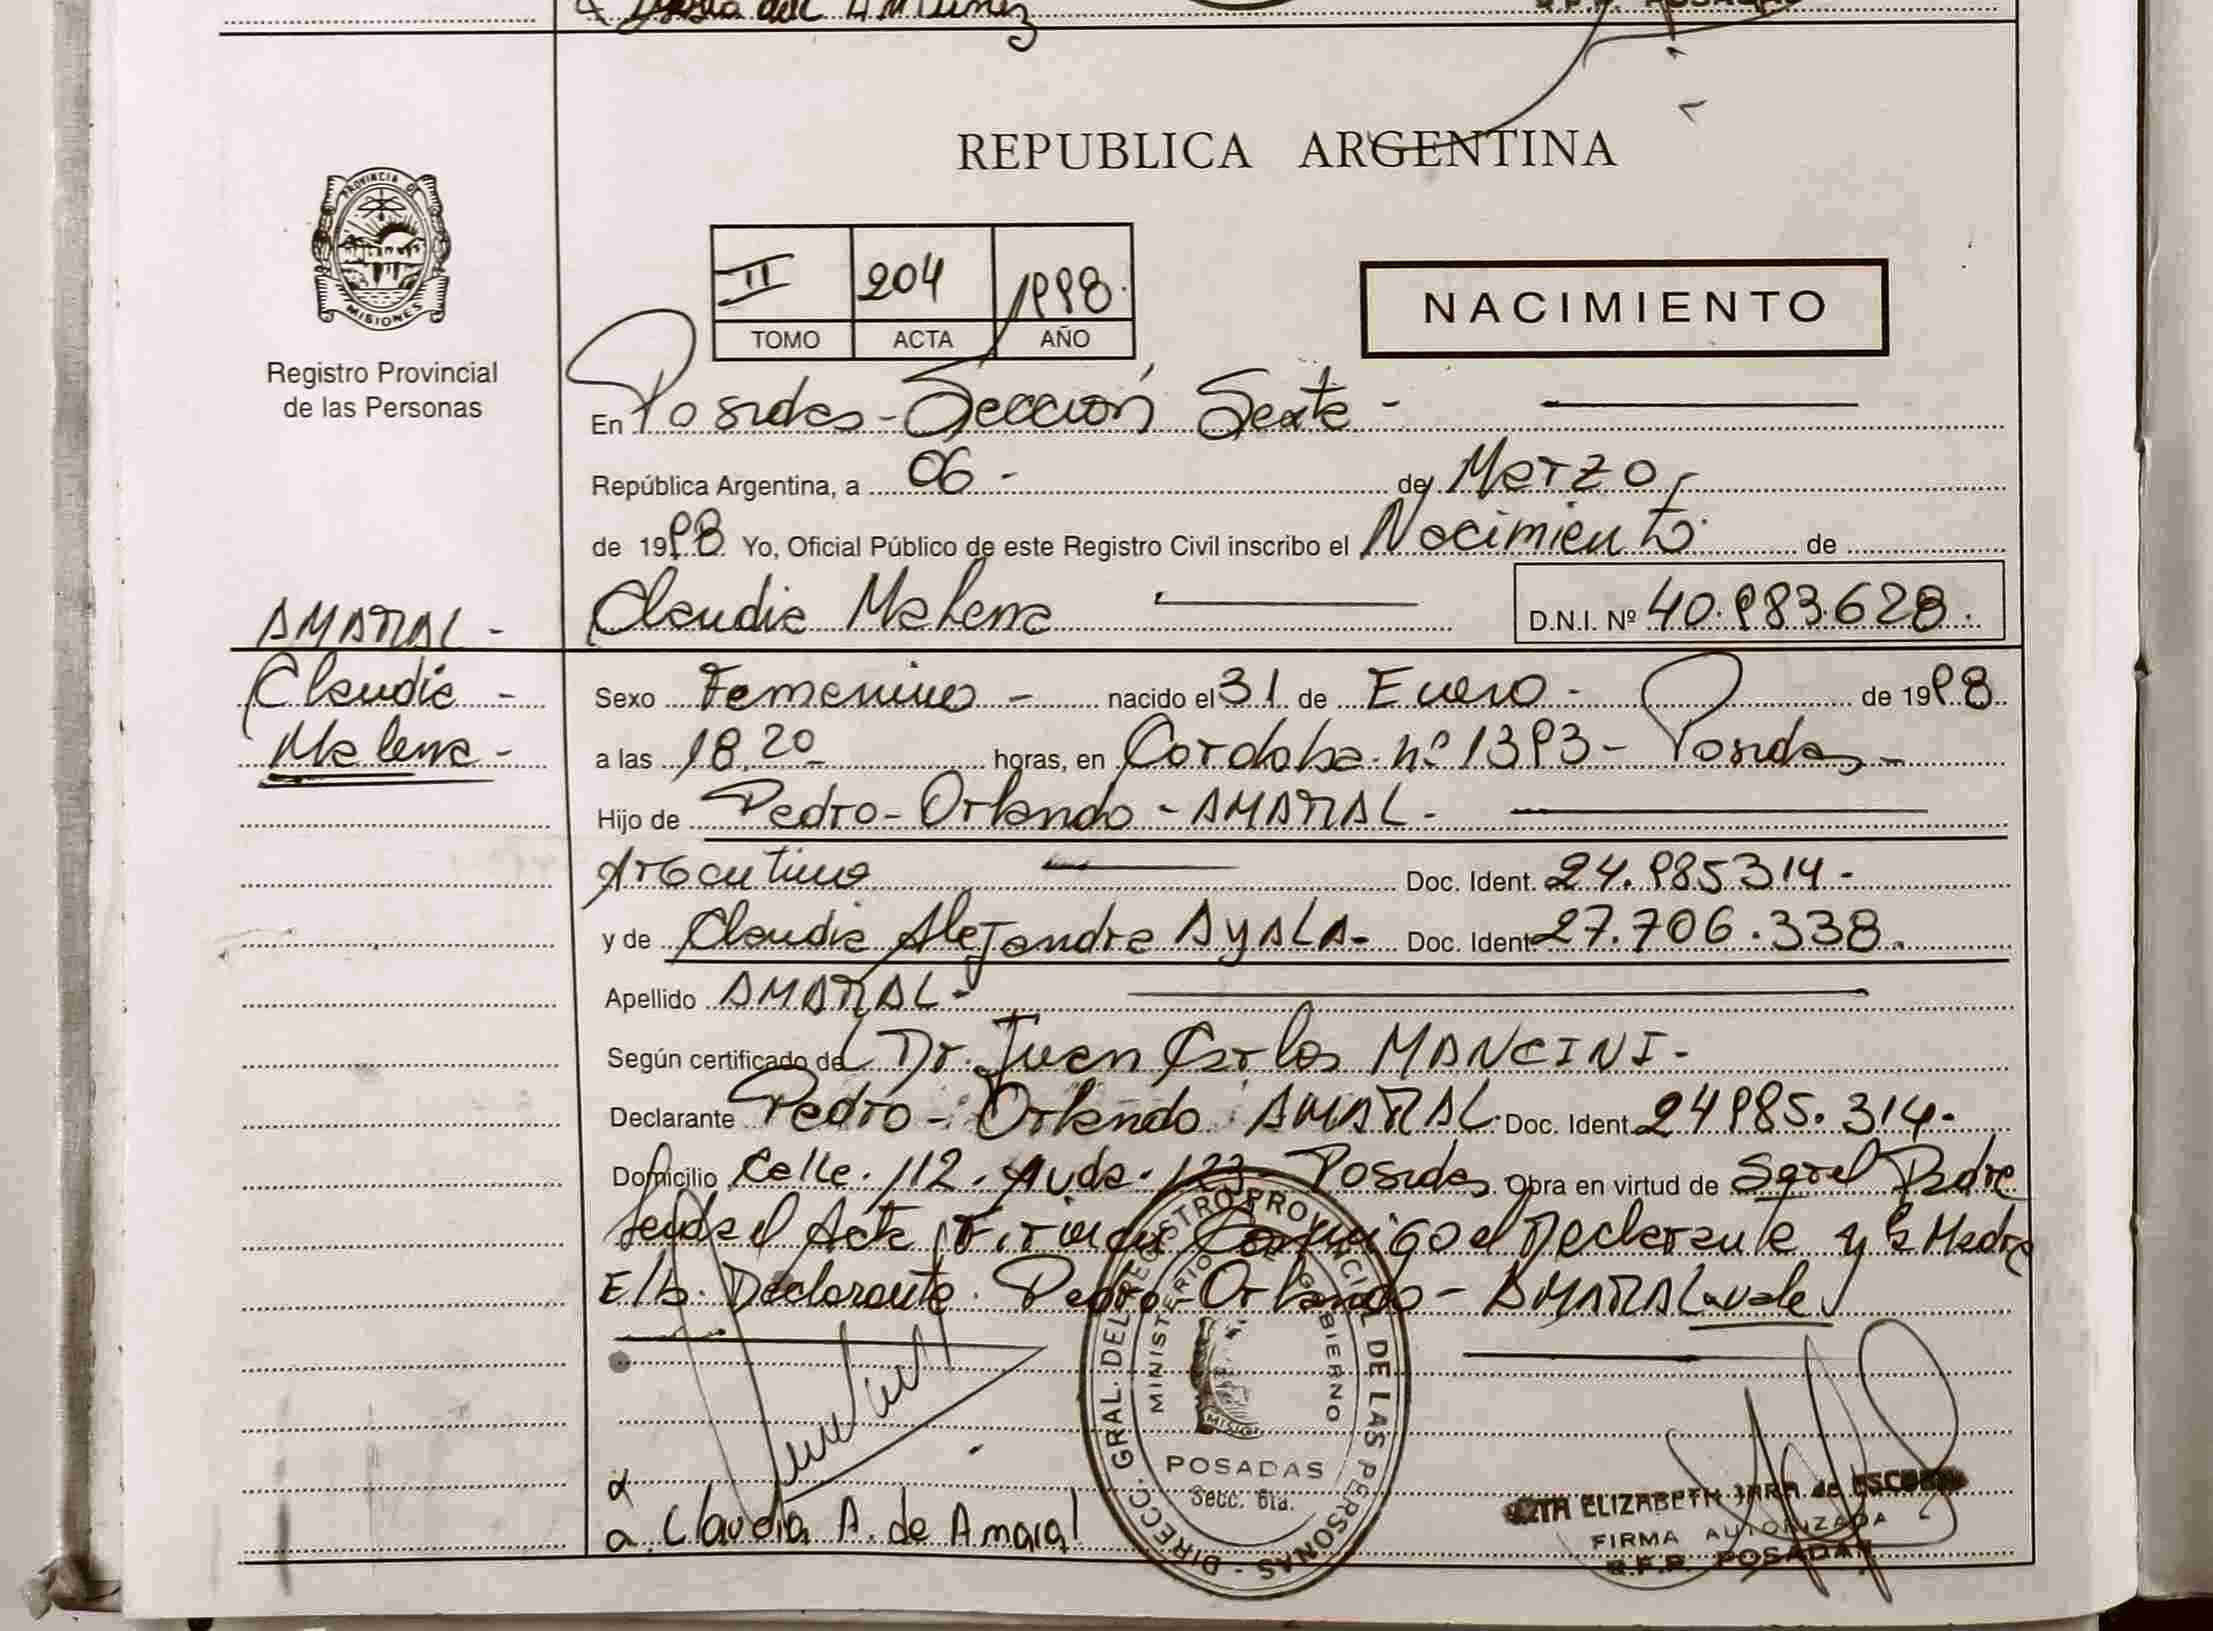 REPUBLICA ARGENTINA
PROVINCIA DE
MISIONES
Registro Provincial
de las Personas
II 204 1998.
TOMO ACTA AÑO
NACIMIENTO
En Posadas - Sección Sexta -
República Argentina, a 06 - de Marzo
de 1998 Yo, Oficial Público de este Registro Civil inscribo el Nacimiento de
Claudia Malena
D.N.I. Nº 40.983.628.
AMARAL -
Claudia -
Malena -
Sexo Femenino - nacido el 31 de Enero - de 1998
a las 18,20 horas, en Cordoba nº 1393 - Posadas -
Hijo de Pedro - Orlando - AMARAL -
Argentino Doc. Ident. 24.985314 -
y de Claudia Alejandra AyALA - Doc. Ident. 27.706.338.
Apellido AMARAL -
Según certificado del Dr. Juan Carlos MANCINI -
Declarante Pedro - Orlando AMARAL. Doc. Ident. 24985.314 -
Domicilio Calle. 112. Avda. 123 - Posadas. Obra en virtud de Ser el Padre
Leida el Acta, Firman Conmigo el Declarante y la Madre
E/b. Declarante. Pedro - Orlando - AMARAL vale
DIRECC. GRAL. DEL REGISTRO PROVINCIAL DE LAS PERSONAS
MINISTERIO DE GOBIERNO
POSADAS
Secc. 6ta.
a. Claudia A. de Amaral
ELIZABETH JARA de ESCOBAR
FIRMA AUTORIZADA
POSADAS